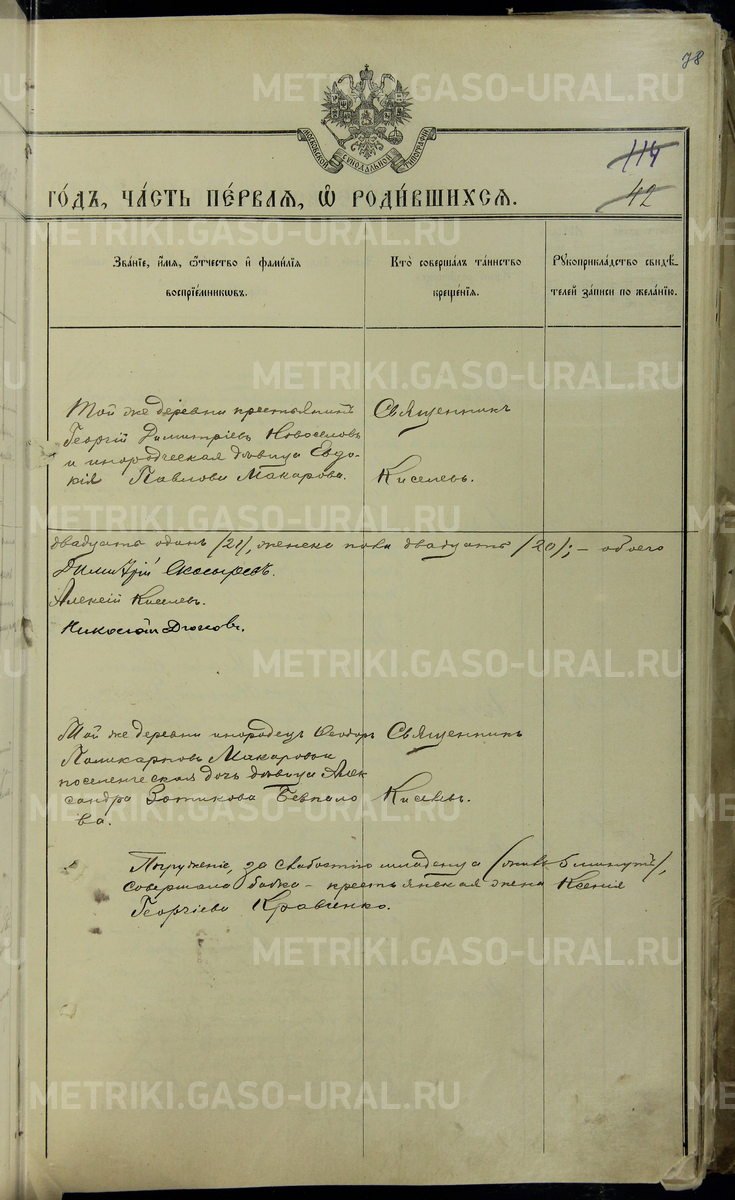 78
МОСКОВСКОЙ СѴНОДАЛЬНОЙ ТИПОГРАФІИ
114
42
ГО́ДЪ, ЧА́СТЬ ПЕ́РВАЯ, Ѽ РОДИ́ВШИХСЯ.
Зва́нїе, и҆́мя, ѻ҆́тчество и҆ фами́лїя
воспрїе́мникѡвъ.
Кто̀ соверша́лъ та́инство
креще́нїя.
Рꙋкоприкла́дство свидѣ́-
телей за́писи по жела́нїю.
Той же деревни крестьянинъ
Георгій Димитріевъ Новоселовъ
и инородческая дѣвица Евдо-
кія Павлова Макарова.
Священникъ
Киселевъ.
двадцать одинъ /21/, женска пола двадцать /20/; – обоего
Димитрій Скосыревъ.
Алексій Киселевъ.
Николай
Той же деревни инородецъ Ѳеодоръ
Поликарповъ Макаровъ и
поселенческая дочь дѣвица Алек
сандра Зотикова Безпало
ва.
Священникъ
Киселевъ.
Погруженіе, за слабостію младенца (живъ 5 минутъ),
совершала бабка – крестьянская жена Ксенія
Георгіева Кравченко.
METRIKI.GASO-URAL.RU